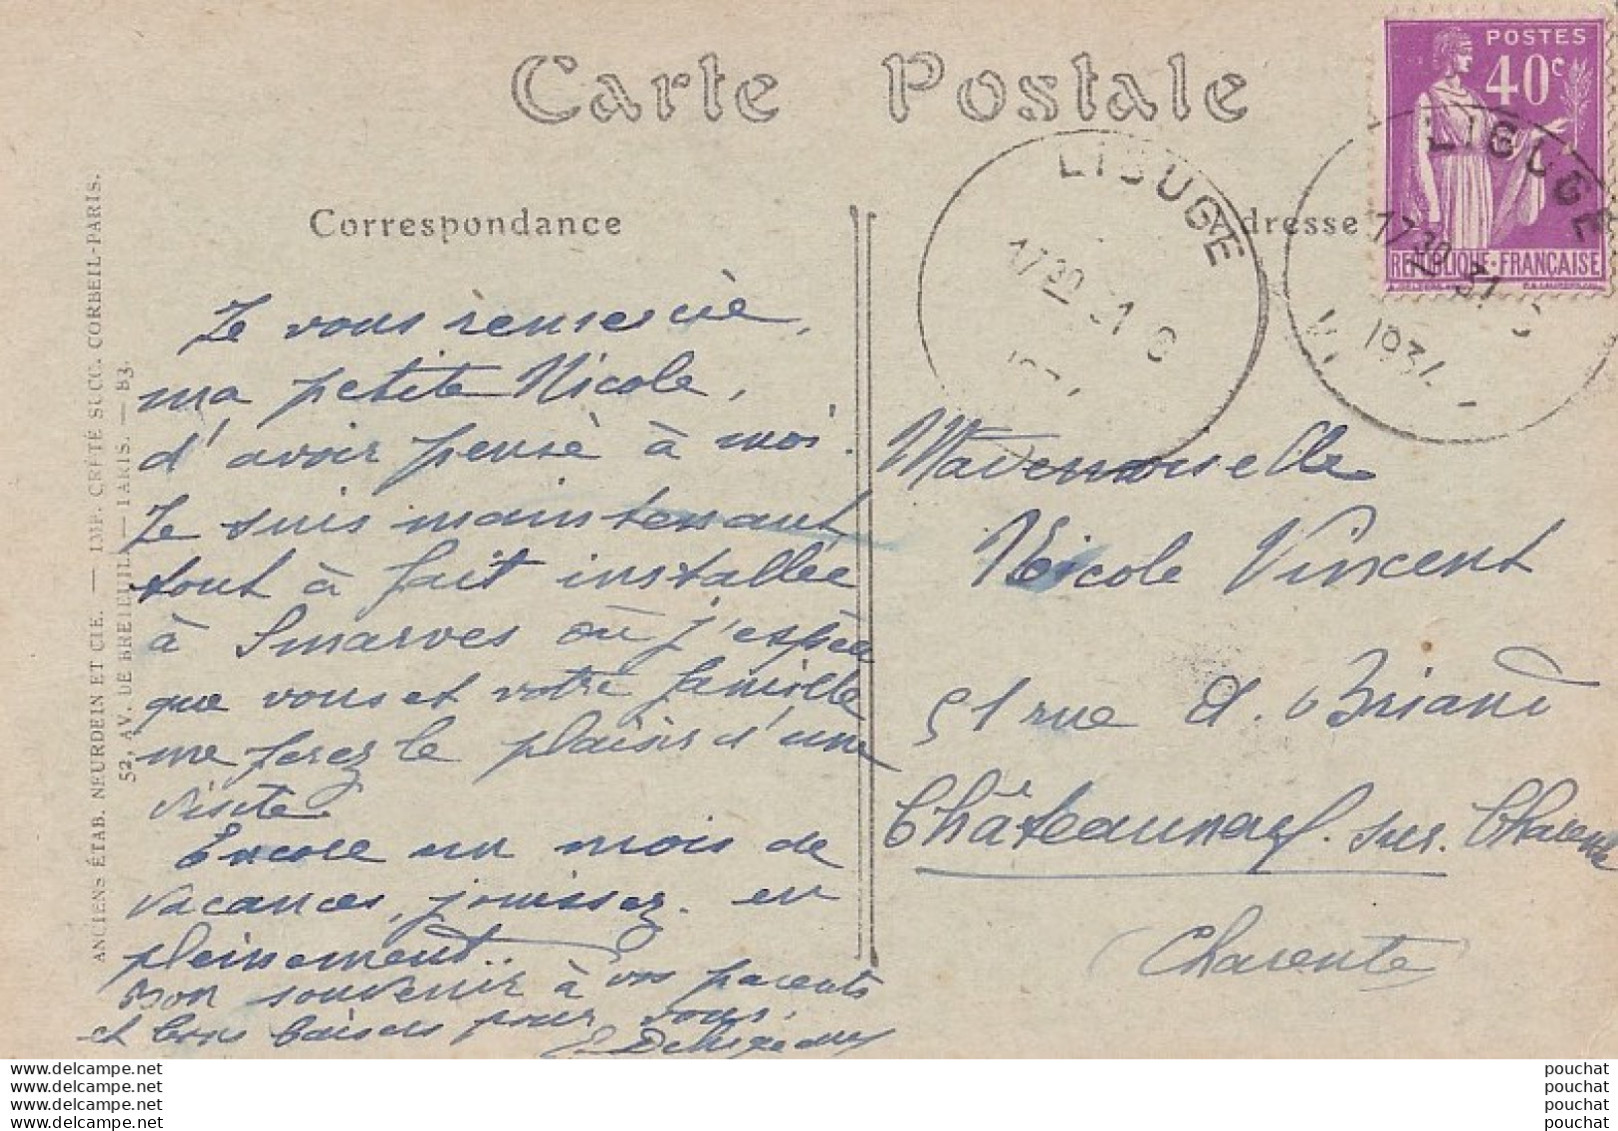 Carte Postale
POSTES
40c
REPUBLIQUE-FRANÇAISE
LIGUGE
17 30
LIGUGE
17 30 31
1934
Correspondance
Adresse
Je vous remercie,
ma petite Nicole,
d'avoir pensé à moi.
Je suis maintenant
tout à fait installée
à Smarves où j'espère
que vous et votre famille
me ferez le plaisir d'une
visite.
Encore un mois de
vacances, jouissez-en
pleinement.
Bon souvenir à vos parents
et bons baisers pour vous.
Mademoiselle
Nicole Vincent
51 rue A. Briand
Châteauneuf-sur-Charente
(Charente)
ANCIENS ÉTAB. NEURDEIN ET CIE. — IMP. CRÉTÉ SUCC. CORBEIL-PARIS.
52, AV. DE BRETEUIL — PARIS. — B3.
www.delcampe.net
www.delcampe.net
www.delcampe.net
www.delcampe.net
pouchat
pouchat
pouchat
pouchat